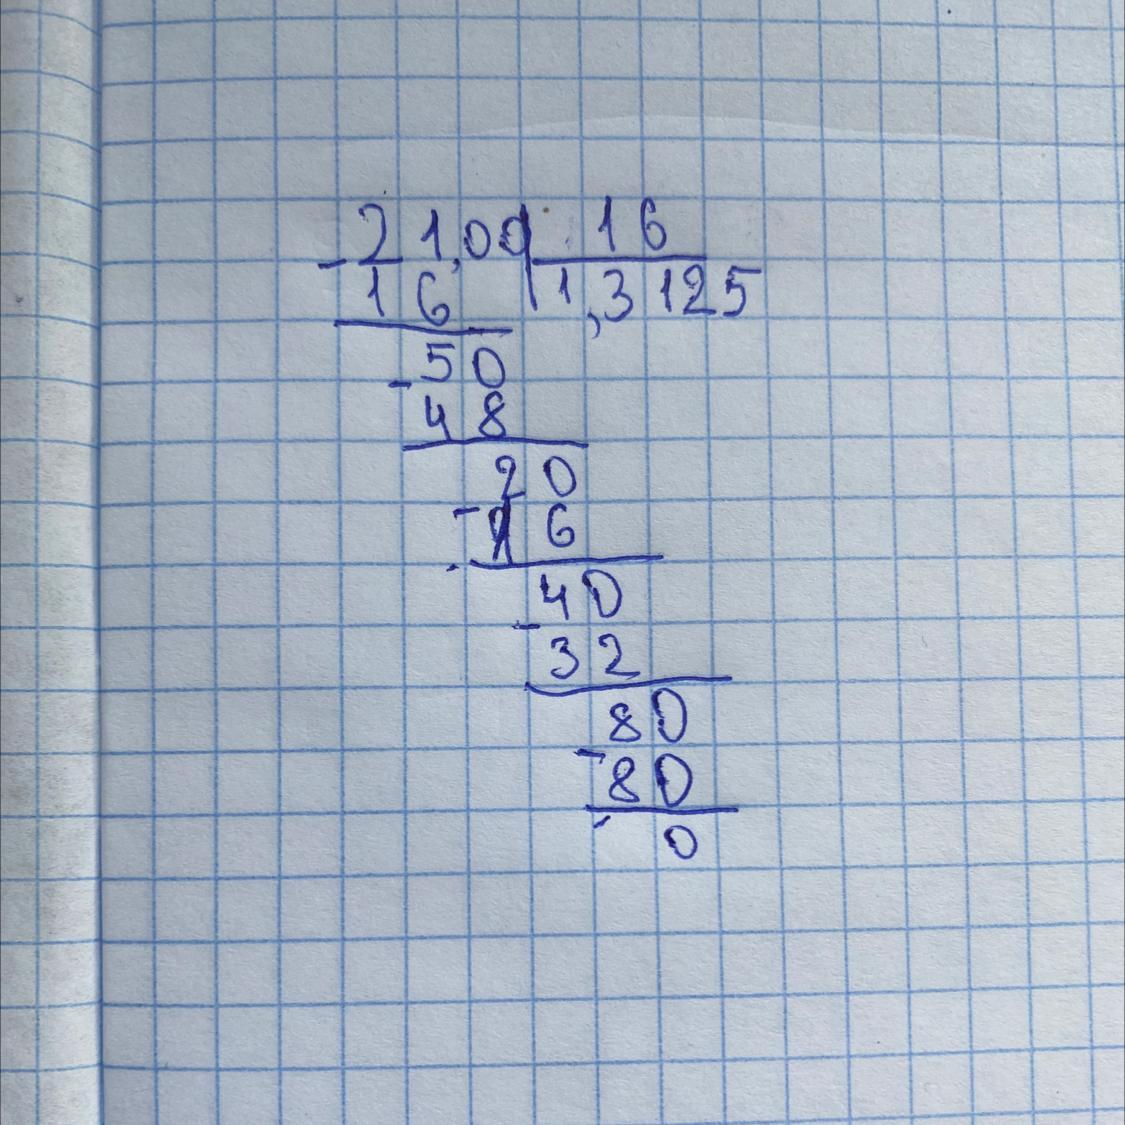 21,00 16
- 16 1,3125
50
- 48
20
- 16
40
- 32
80
- 80
0